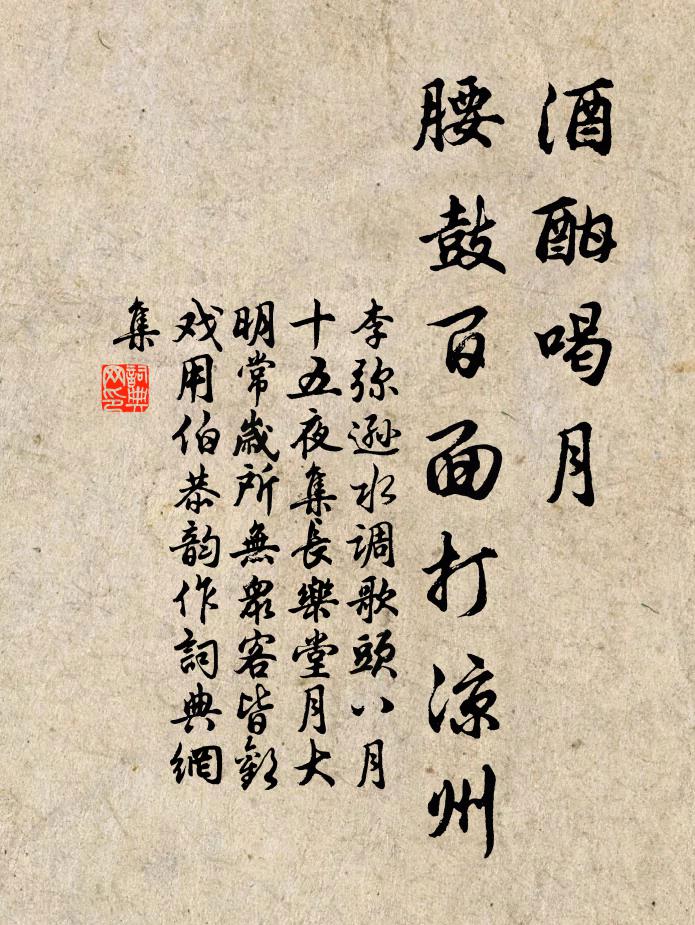 酒酣喝月
腰鼓百面打凉州
李弥遜水調歌頭八月
十五夜集長樂堂月大
明常歲所無衆客皆歡
戏用伯恭韵作詞典網
集
詞典
网印